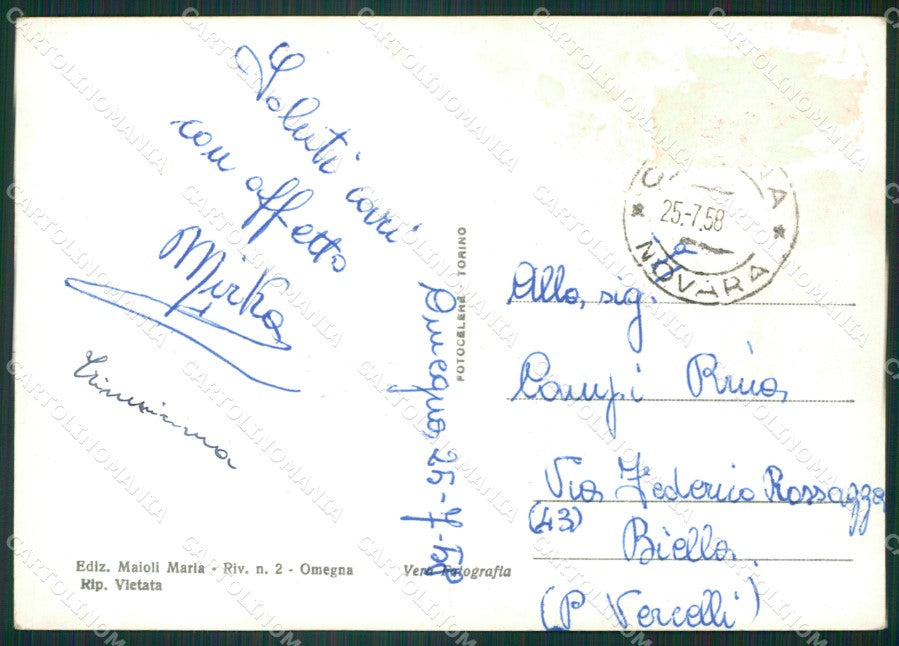 Saluti cari
con affetto
Mirka
Omegna, 25-7-58
FOTOCELERE TORINO
Ediz. Maioli Maria - Riv. n. 2 - Omegna
Rip. Vietata
Vera Fotografia
25.-7.58
NOVARA
Alla, sig.ª
Campi Rina
Via Federico Rossazza
(43)
Biella
(P Vercelli)
CARTOLINOMANIA